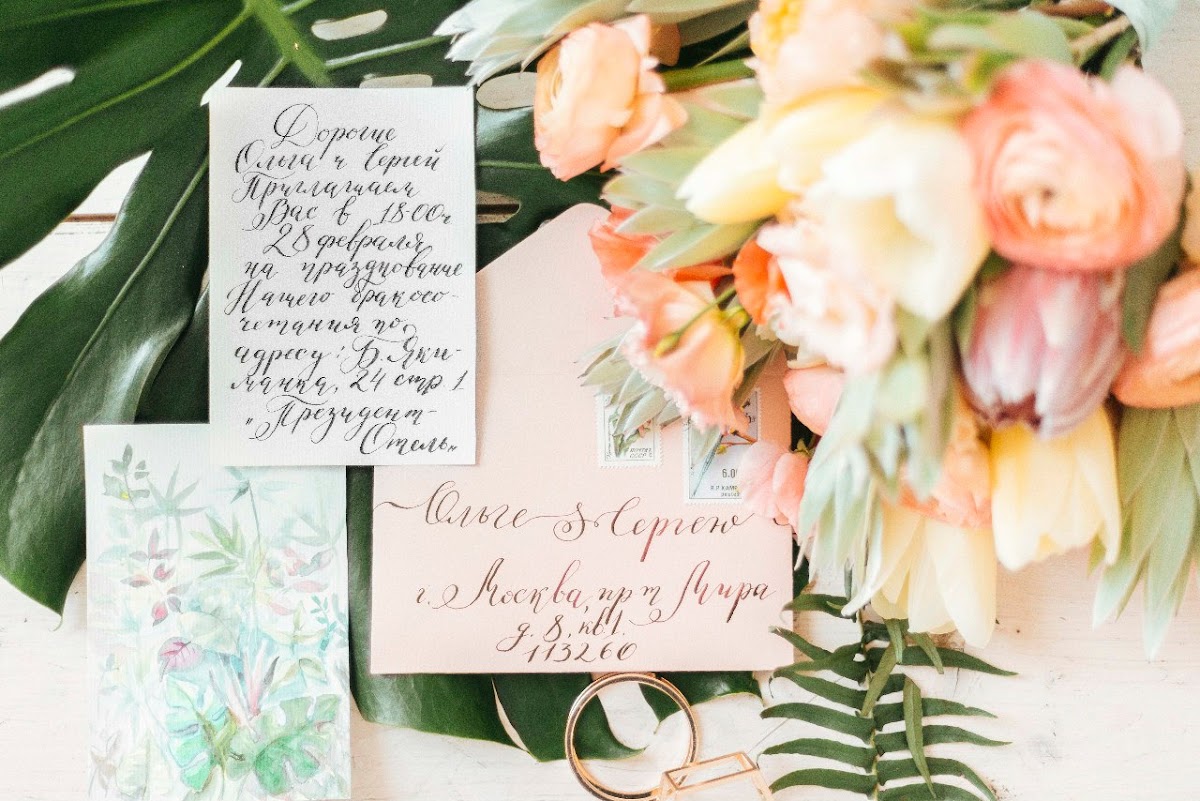 Дорогие
Ольга и Сергей
Приглашаем
Вас в 18-00ч
28 февраля
на празднование
Нашего бракосо-
четания по
адресу: Б. Яки-
манка, 24 стр 1
„Президент-
Отель„
6.00
Ольге & Сергею
г. Москва, пр-т Мира
д. 8, кв 1.
113260